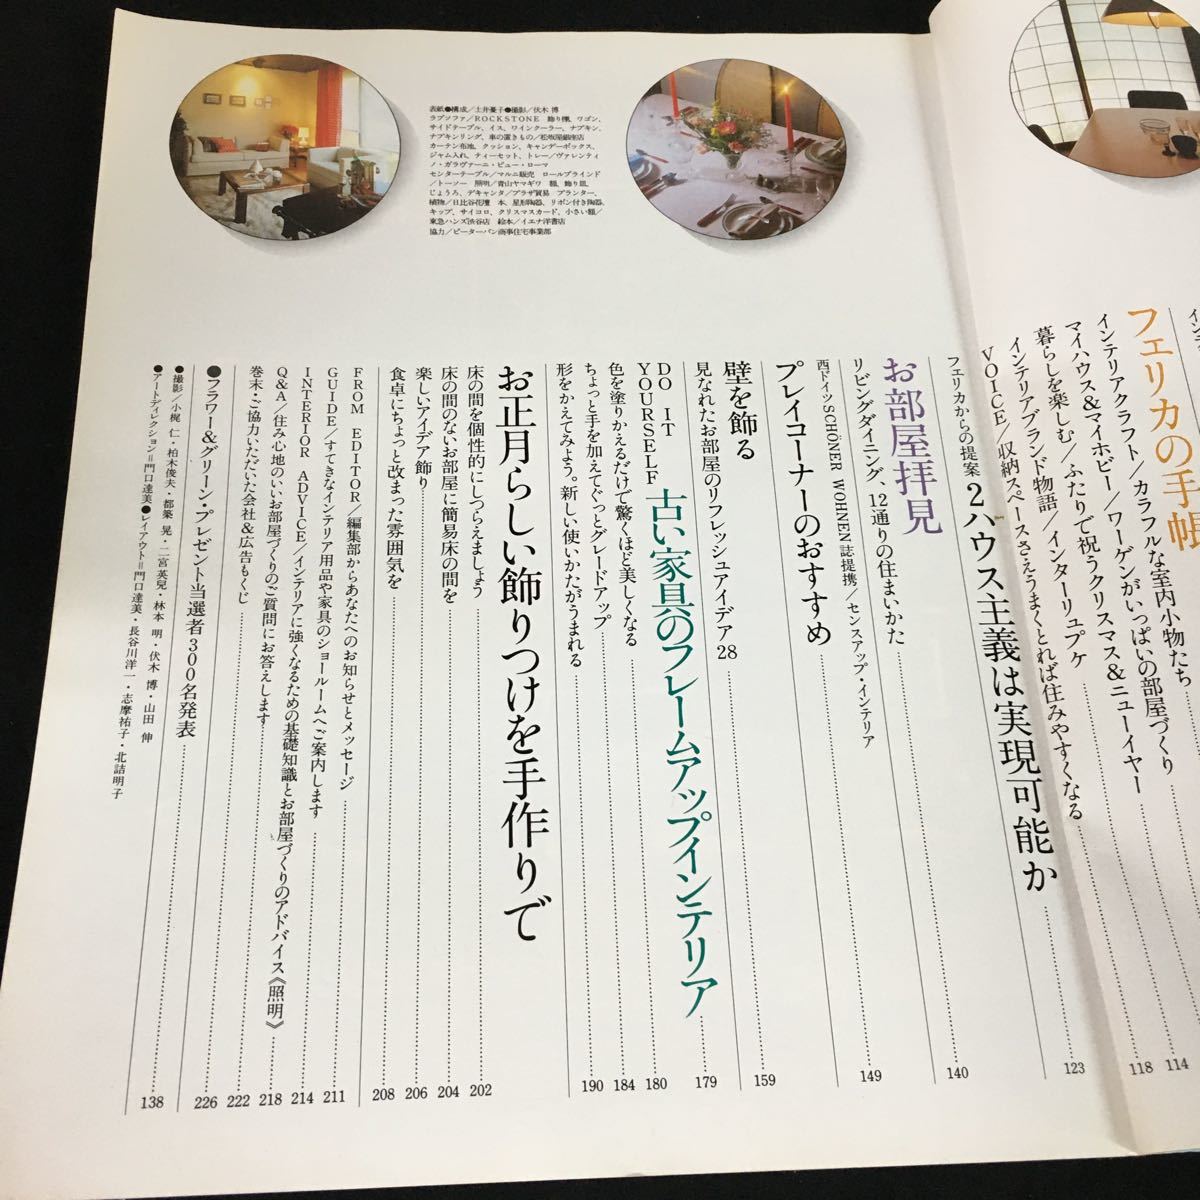 表紙●構成／土井憂子●撮影／伏木 博
ラブソファ／ROCKSTONE 飾り棚、ワゴン、
サイドテーブル、イス、ワインクーラー、ナプキン、
ナプキンリング、車の置きもの／松坂屋銀座店
カーテン布地、クッション、キャンデーボックス、
ジャム入れ、ティーセット、トレー／ヴァレンティ
ノ・ガラヴァーニ・ピュー・ローマ
センターテーブル／マルニ販売 ロールブラインド
／トーソー 照明／青山ヤマギワ 額、飾り皿、
じょうろ、デキャンタ／プラザ貿易 プランター、
植物／日比谷花壇 本、星形陶器、リボン付き陶器、
キップ、サイコロ、クリスマスカード、小さい額／
東急ハンズ渋谷店 絵本／イエナ洋書店
協力／ピーターパン商事住宅事業部
フェリカの手帳
インテリアクラフト／カラフルな室内小物たち 114
マイハウス＆マイホビー／ワーゲンがいっぱいの部屋づくり 118
暮らしを楽しむ／ふたりで祝うクリスマス＆ニューイヤー
インテリアブランド物語／インターリュプケ
VOICE／収納スペースさえうまくとれば住みやすくなる 123
フェリカからの提案 2ハウス主義は実現可能か 140
お部屋拝見
リビングダイニング、12通りの住まいかた 149
西ドイツSCHÖNER WOHNEN誌提携／センスアップ・インテリア
プレイコーナーのおすすめ 159
壁を飾る
見なれたお部屋のリフレッシュアイデア28 179
DO IT YOURSELF 古い家具のフレームアップインテリア
色を塗りかえるだけで驚くほど美しくなる 180
ちょっと手を加えてぐっとグレードアップ 184
形をかえてみよう。新しい使いかたがうまれる 190
お正月らしい飾りつけを手作りで
床の間を個性的にしつらえましょう 202
床の間のないお部屋に簡易床の間を 204
楽しいアイデア飾り 206
食卓にちょっと改まった雰囲気を 208
FROM EDITOR／編集部からあなたへのお知らせとメッセージ 211
GUIDE／すてきなインテリア用品や家具のショールームへご案内します 214
INTERIOR ADVICE／インテリアに強くなるための基礎知識とお部屋づくりのアドバイス《照明》 218
Q&A／住み心地のいいお部屋づくりのご質問にお答えします 222
巻末・ご協力いただいた会社＆広告もくじ 226
●フラワー＆グリーン・プレゼント当選者300名発表 138
●撮影／小梶 仁・柏木俊夫・都築 晃・二宮英兒・林本 明・伏木 博・山田 伸
●アートディレクション＝門口達美●レイアウト＝門口達美・長谷川洋一・志摩祐子・北詰明子